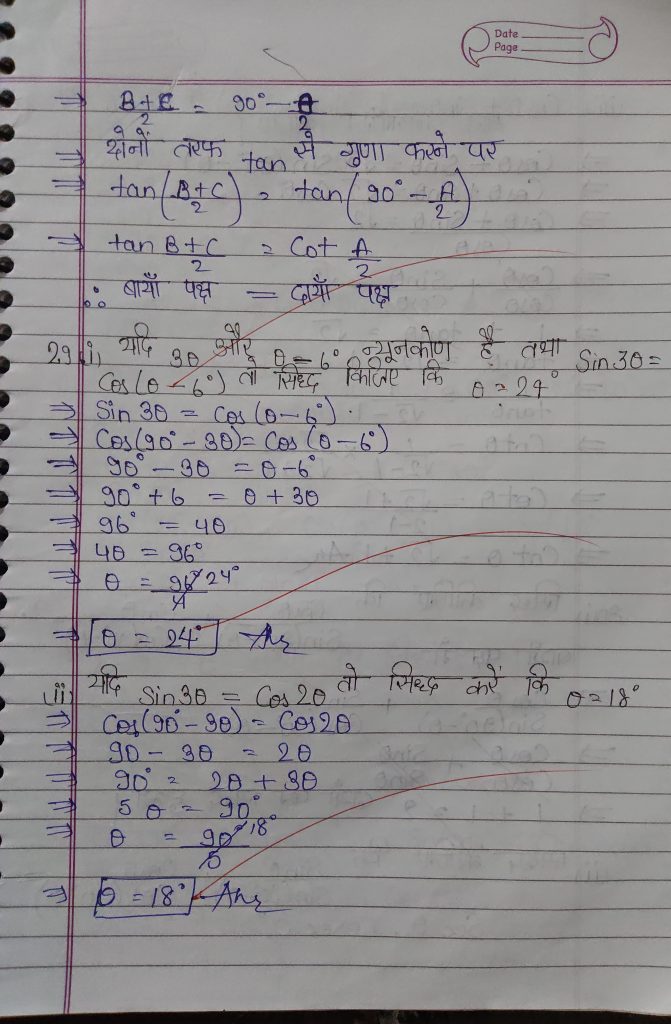 Date
Page
⇒ B+C/2 = 90° - A/2
⇒ दोनों तरफ tan से गुणा करने पर
⇒ tan(B+C/2) = tan(90° - A/2)
⇒ tan B+C/2 = Cot A/2
∴ बायाँ पक्ष = दायाँ पक्ष
29.(i) यदि 3θ और θ - 6° न्यूनकोण है तथा Sin 3θ =
Cos(θ - 6°) तो सिध्द किजिए कि θ = 24°
⇒ Sin 3θ = Cos(θ - 6°)
⇒ Cos(90° - 3θ) = Cos(θ - 6°)
⇒ 90° - 3θ = θ - 6°
⇒ 90° + 6 = θ + 3θ
⇒ 96° = 4θ
⇒ 4θ = 96°
⇒ θ = 96°/4 24°
⇒ θ = 24° Ans
(ii) यदि Sin3θ = Cos 2θ तो सिध्द करें कि θ = 18°
⇒ Cos(90° - 3θ) = Cos2θ
⇒ 90 - 3θ = 2θ
⇒ 90° = 2θ + 3θ
⇒ 5θ = 90°
⇒ θ = 90°/5 18°
⇒ θ = 18° Ans